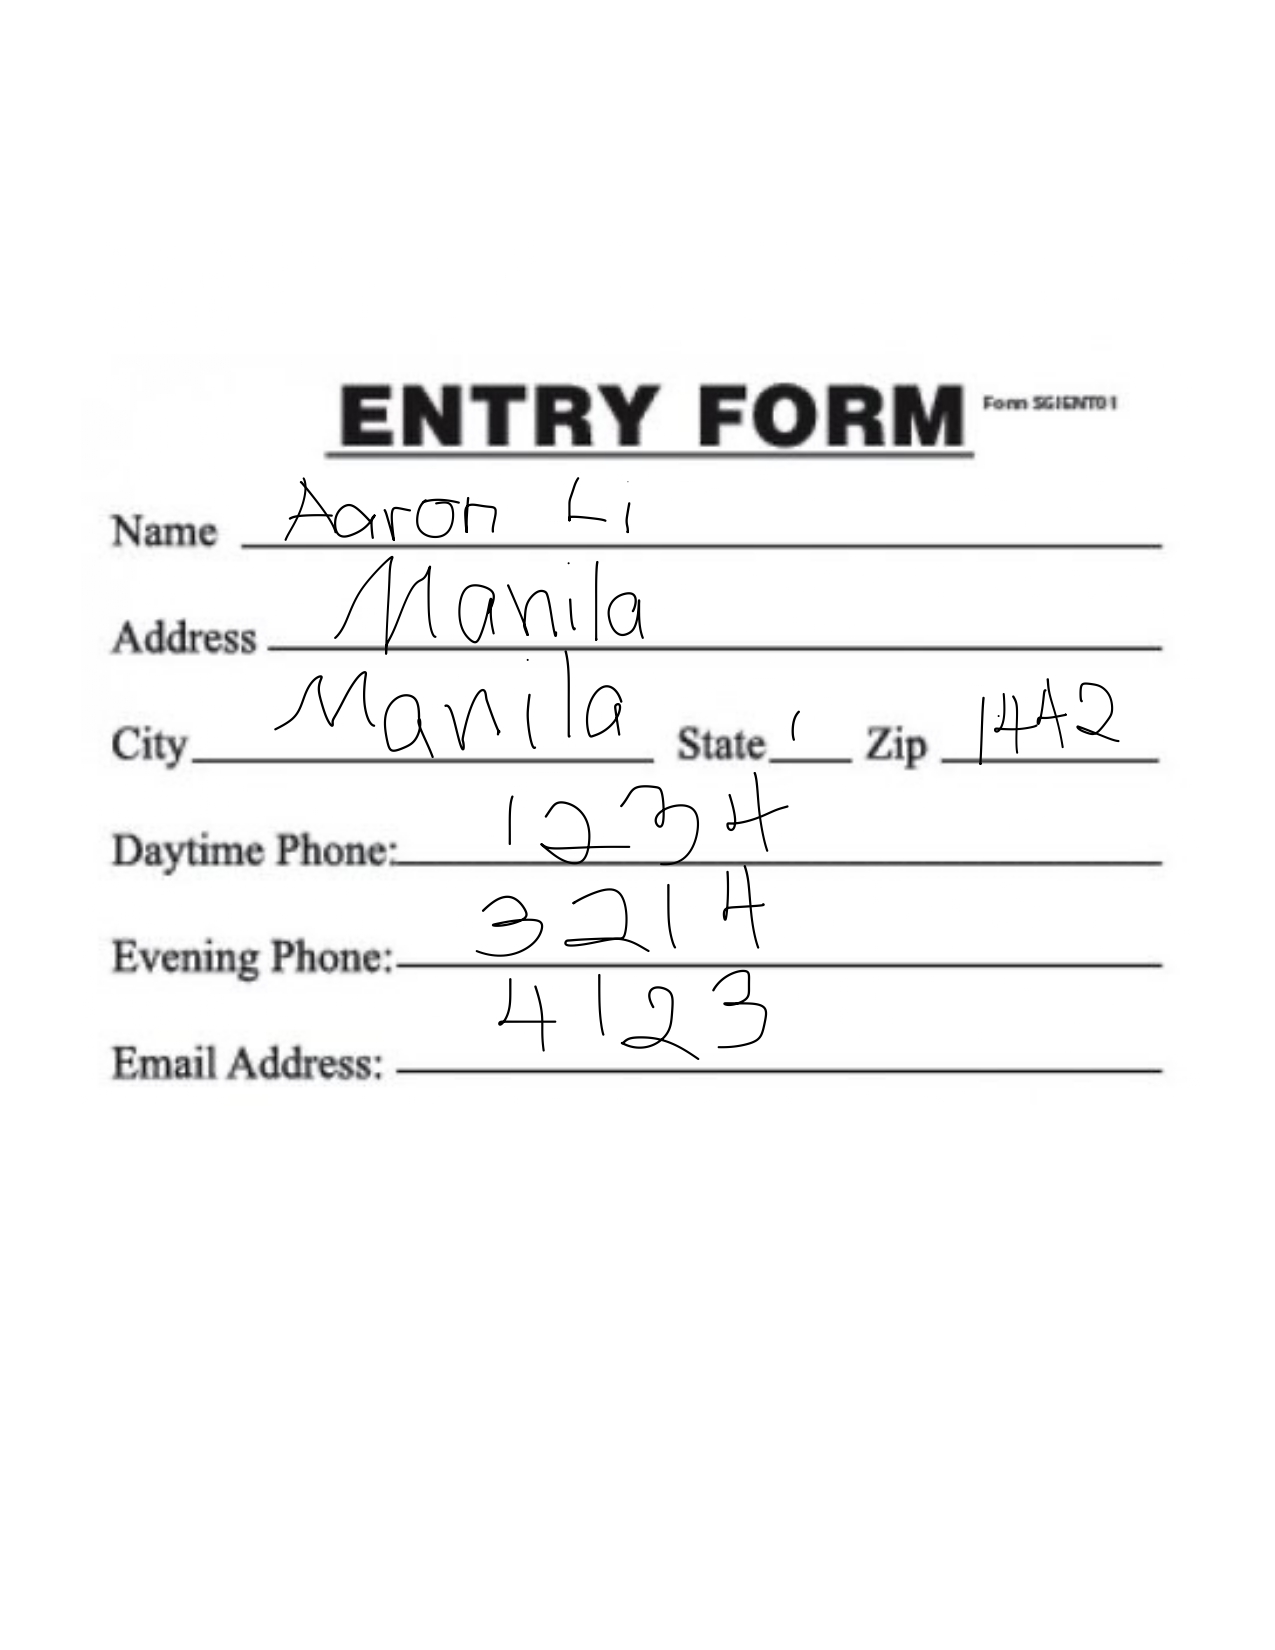 ENTRY FORM Form SGIENT01
Name Aaron Li
Address Manila
City Manila State Zip 1442
Daytime Phone: 1234
Evening Phone: 3214
Email Address: 4123